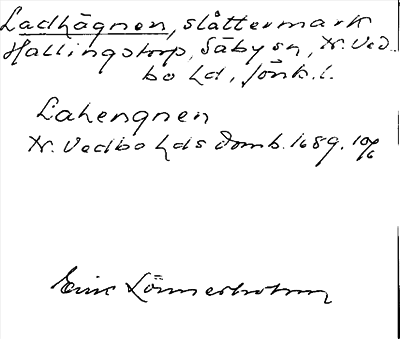 Ladhägnen, slåttermark
Hallingstorp, Säby sn, N. Ved-
bo hd, Jönk. l.
Lahengnen
N. Vedbo hds domb. 1689. 10/6
Eric Lönnerholm